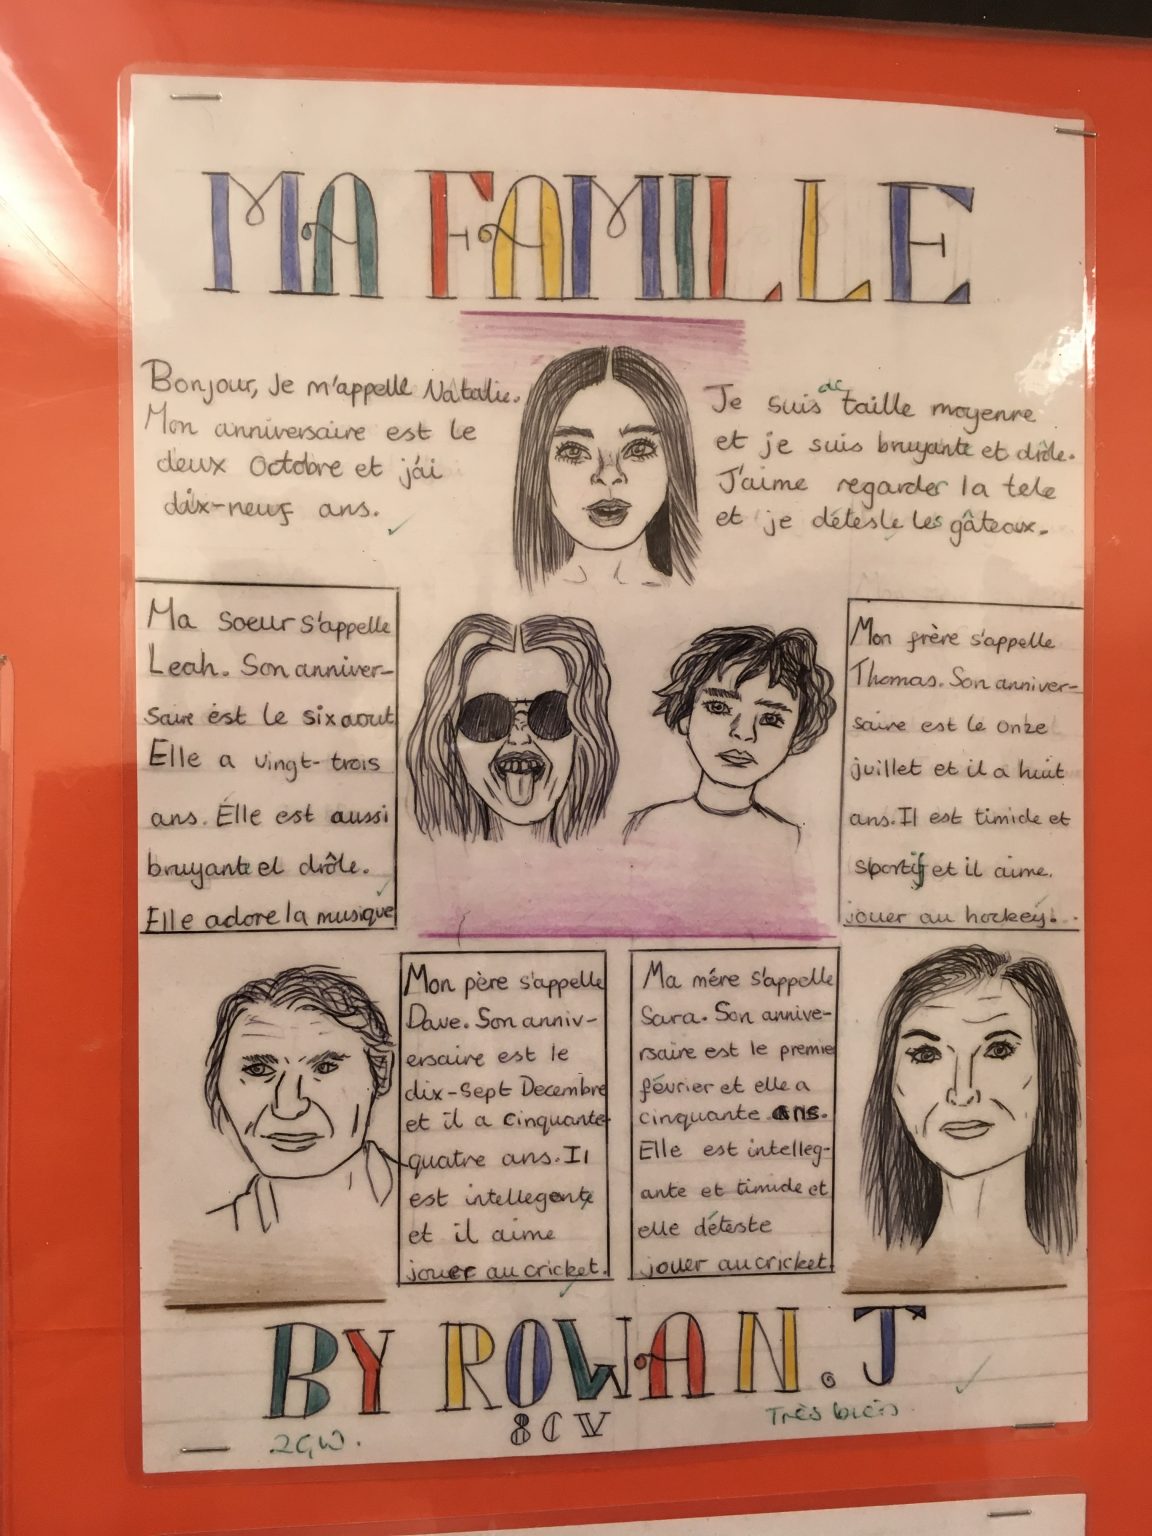 MA FAMILLE
Bonjour, Je m'appelle Natalie.
Mon anniversaire est le
deux Octobre et j'ai
dix-neuf ans.
Je suis de taille moyenne
et je suis bruyante et drôle.
J'aime regarder la tele
et je déteste les gâteaux.
Ma soeur s'appelle
Leah. Son anniver-
saire est le six aout
Elle a vingt-trois
ans. Elle est aussi
bruyante et drôle.
Elle adore la musique
Mon frère s'appelle
Thomas. Son anniver-
saire est le onze
juillet et il a huit
ans. Il est timide et
sportif et il aime.
jouer au hockey.
Mon père s'appelle
Dave. Son anniv-
ersaire est le
dix-sept Decembre
et il a cinquante-
quatre ans. Il
est intellegente
et il aime
jouer au cricket.
Ma mére s'appelle
Sara. Son annive-
rsaire est le premie
février et elle a
cinquante ans.
Elle est intelleg-
ante et timide et
elle déteste
jouer au cricket
BY ROWAN.J
8CV
2GW.
Très bien